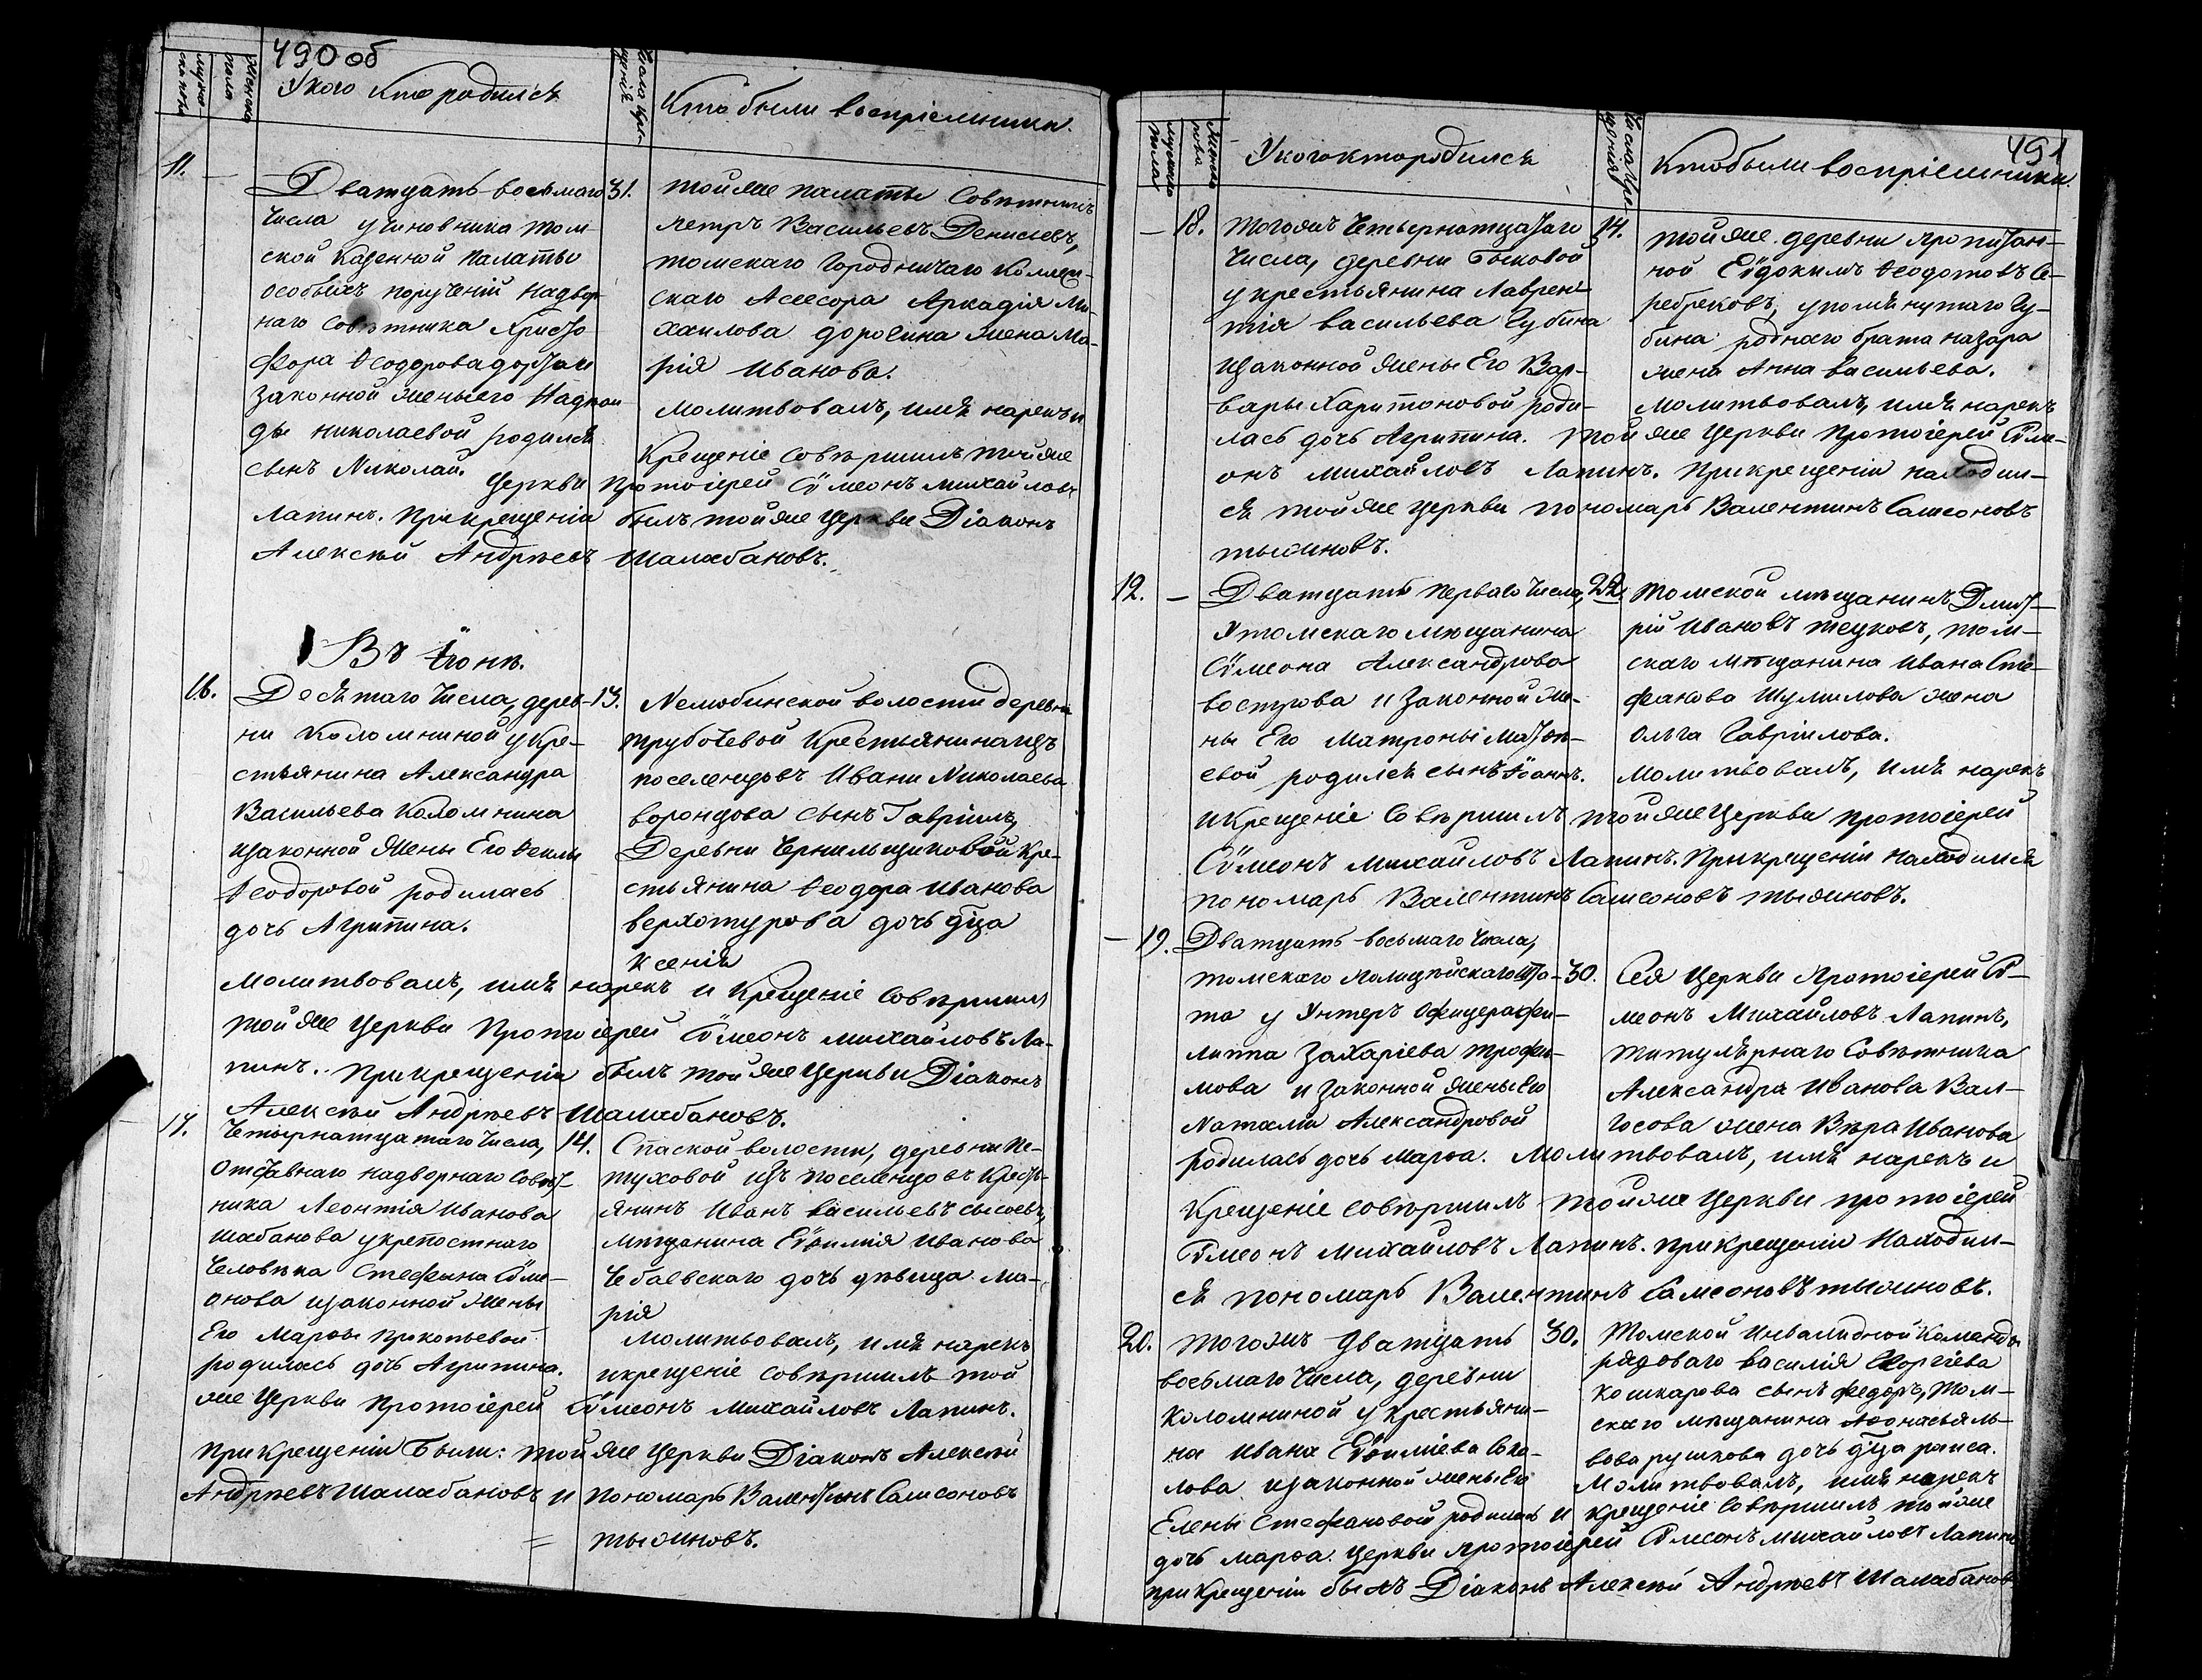 490 об
мужеска пола
женска
У кого кто родился
Числа Кре-
щенія
Кто были воспріемники.
11.
—
Дватцать восьмаго
числа у чиновника Том-
ской Казенной Палаты
особыхъ порученій Надвор-
наго Совѣтника Христо-
фора Ѳеодорова
законной жены его Надеж-
ды Николаевой родился
сынъ Николай.
31.
той же палаты Совѣтникъ
Петръ Васильевъ Денисевъ,
томскаго Городничаго Коллеж-
скаго Асесора Аркадія Ми-
хаилова дорохина жена Ма-
рія Иванова.
Молитвовалъ, имя нарекъ и
Крещеніе Совершилъ той же
Церкви Протоіерей Сѵмеонъ Михайловъ
Лапинъ. При крещеніи былъ той же Церкви Діаконъ
Алексѣй Андрѣевъ Шалабановъ.
Въ Іюнѣ.
16.
Десятаго числа, дерев-
ни Коломниной у Кре-
стьянина Александра
Васильева Коломнина
и законной жены Его Ѳеклы
Ѳеодоровой родилась
дочь Агрипина.
13.
Нелюбинской волости деревни
трубочевой Крестьянина изъ
поселенцовъ Ивана Николаева
воронцова сынъ Гавріилъ,
Деревни Чернильщиковой Кре-
стьянина Ѳеодора Иванова
верхотурова дочь дѣца
Ксенія
Молитвовалъ, имя нарекъ и Крещеніе Совершилъ
той же Церкви Протоіерей Сѵмеонъ Михайловъ Ла-
пинъ. При крещеніи былъ той же Церкви Діаконъ
Алексѣй Андрѣевъ Шалабановъ.
17.
Четырнатцатаго числа,
Отставнаго надворнаго Совѣт-
ника Леонтія Иванова
Шабанова у крепостнаго
Человѣка Стефана Сѵме-
онова и законной жены
Его Марѳы Прокопьевой
родилась дочь Агрипина.
14.
Спаской волости, деревни Пе-
туховой изъ поселенцовъ Кресть-
янинъ Иванъ Васильевъ сысоевъ,
мѣщанина Еѵѳимія Иванова
Чебаевскаго дочь дѣвица Ма-
рія
Молитвовалъ, имя нарекъ
и крещеніе совершилъ той
же Церкви Протоіерей Сѵмеонъ Михайловъ Лапинъ.
При Крещеніи были: той же Церкви Діаконъ Алексѣй
Андрѣевъ Шалабановъ и пономарь Валентинъ Самсоновъ
тыжиновъ.
491
мужеска пола
У кого кто родился
Числа Кре-
щенія
Кто были воспріемники.
—
18.
Тогожъ Четырнатцатаго
Числа, деревни Быковой
у крестьянина Лаврен-
тія Васильева Губина
и законной жены Его Вар-
вары Харитоновой роди-
лась дочь Агрипина.
14.
той же деревни
ной Еѵдокимъ Ѳеодотовъ Се-
ребреновъ, упомянутаго Гу-
бина роднаго брата Назара
жена Анна Васильева.
Молитвовалъ, имя нарекъ
той же Церкви Протоіерей Сѵме-
онъ Михайловъ Лапинъ. При крещеніи находил-
ся той же Церкви пономарь Валентинъ Самсоновъ
тыжиновъ.
12.
—
Дватцать перваго числа,
У томскаго мѣщанина
Сѵмеона Александрова
вострова и законной же-
ны Его Матроны Матѳе-
евой родился сынъ Іоаннъ.
22.
Томской мѣщанинъ Дмит-
рій Ивановъ тецковъ, том-
скаго мѣщанина Ивана Сте-
фанова Шумилова жена
Ольга Гавріилова.
Молитвовалъ, имя нарекъ
и крещеніе Совершилъ той же Церкви протоіерей
Сѵмеонъ Михайловъ Лапинъ. При крещеніи находился
пономарь Валентинъ Самсоновъ тыжиновъ.
—
19.
Дватцать восьмаго числа,
томскаго Полицейскаго Шта-
та у Унтеръ Офицера Фи-
липпа Захаріева трофи-
мова и законной жены Его
Наталіи Александровой
родилась дочь Марѳа.
30.
Сея Церкви Протоіерей Сѵ-
меонъ Михайловъ Лапинъ,
титулярнаго Совѣтника
Александра Иванова Вал-
госова жена Вѣра Иванова
Молитвовалъ, имя нарекъ и
Крещеніе совершилъ той же Церкви протоіерей
Сѵмеонъ Михайловъ Лапинъ. при крещеніи находил-
ся пономарь Валентинъ Самсоновъ тыжиновъ.
20.
тогожъ дватцать
восьмаго числа, деревни
Коломниной у крестьяни-
на Ивана Еѵѳиміева Соко-
лова и законной жены Его
Елены Стефановой родилась
дочь Марѳа.
30.
Томской Инвалидной Команды
рядоваго Василія Георгіева
кошкарова сынъ Федоръ, том-
скаго мѣщанина Аѳонасья ль-
вова рушкова дочь дѣца раиса.
Молитвовалъ, имя нарекъ
и крещеніе совершилъ той же
Церкви Протоіерей Сѵмеонъ Михайловъ Лапинъ
при Крещеніи былъ Діаконъ Алексѣй Андрѣевъ Шалабановъ